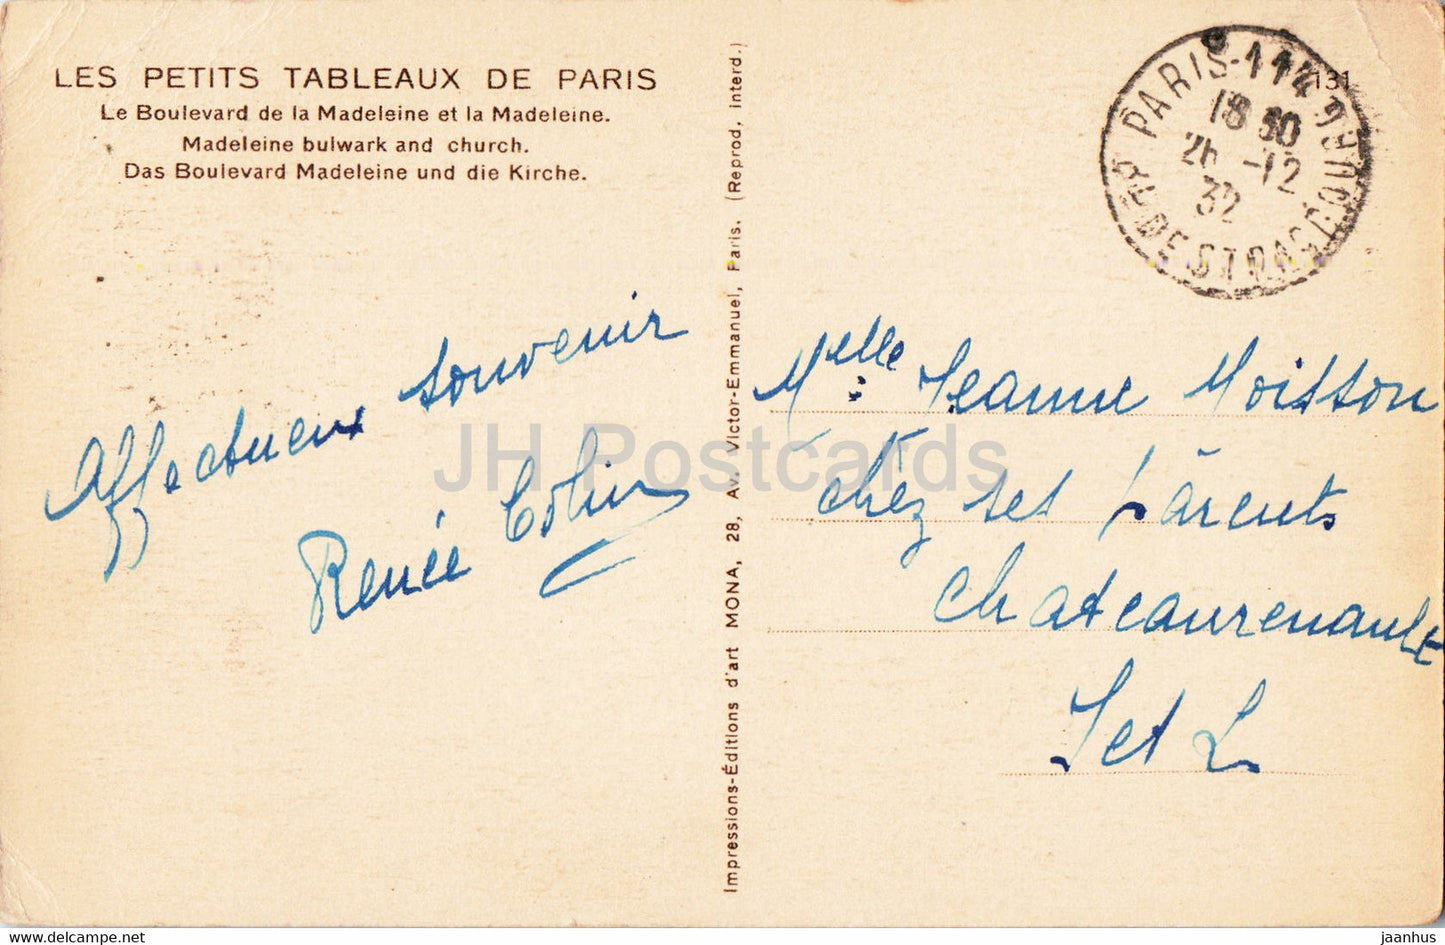 LES PETITS TABLEAUX DE PARIS
Le Boulevard de la Madeleine et la Madeleine.
Madeleine bulwark and church.
Das Boulevard Madeleine und die Kirche.
Affectueux souvenir
Renée Colin
Impressions-Éditions d'art MONA, 28, Av. Victor-Emmanuel, Paris. (Reprod, interd.)
131
PARIS-114
18 30
26 -12
32
DE STRASBOURG
Melle Jeanne Moisson
chez ses Parents
Chateaurenault
I et L
JH Postcards
www.delcampe.net
jaanhus